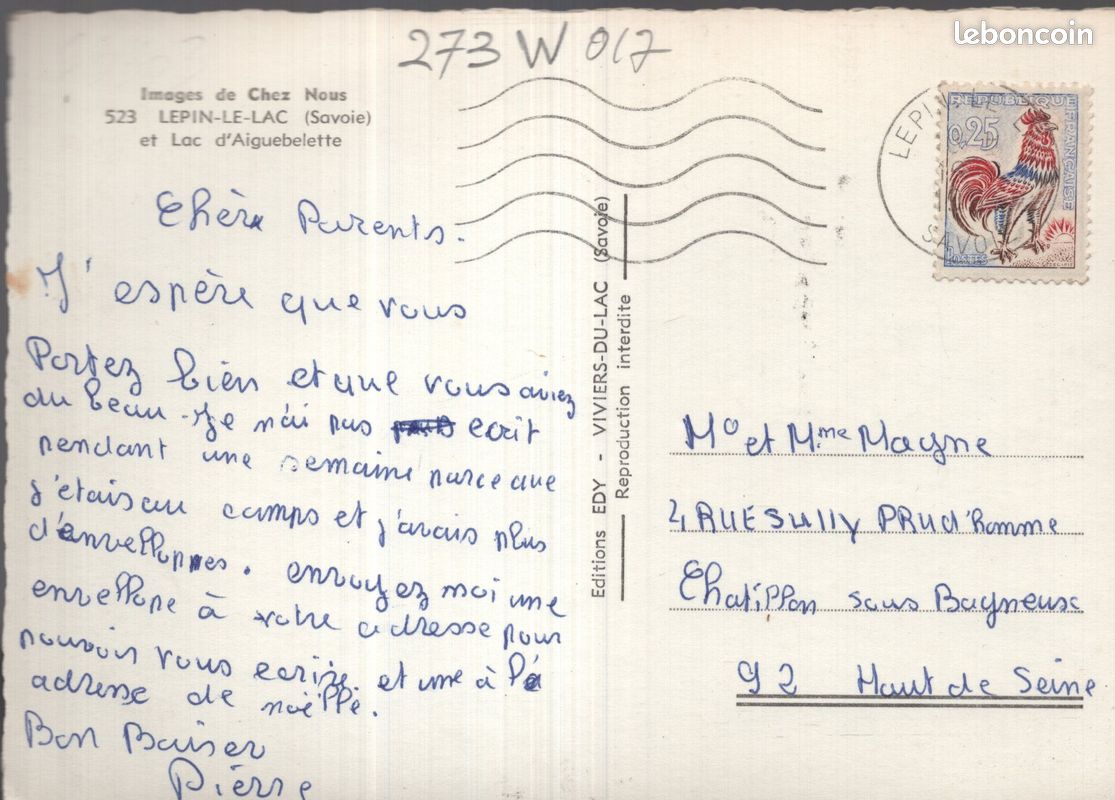 273 W 017
leboncoin
Images de Chez Nous
523 LEPIN-LE-LAC (Savoie)
et Lac d'Aiguebelette
REPUBLIQUE FRANÇAISE
0,25
POSTES
LEPIN
SAVO
Chère Parents.
J'espère que vous
Portez bien et que vous aviez
du beau. Je n'ai pas ecrit
pendant une semaine parceque
j'etais au camps et j'avais plus
d'envelloppes. envoyez moi une
envellope à votre adresse pour
pouvoir vous ecrire et une à l'a
adresse de noëlle.
Bon Baiser
Pierre
Editions EDY - VIVIERS-DU-LAC (Savoie)
Reproduction interdite
Mo et Mme Magne
2, RUE SULLY PRUd'Homme
Chatillon sous Bagneux
92 Haut de Seine